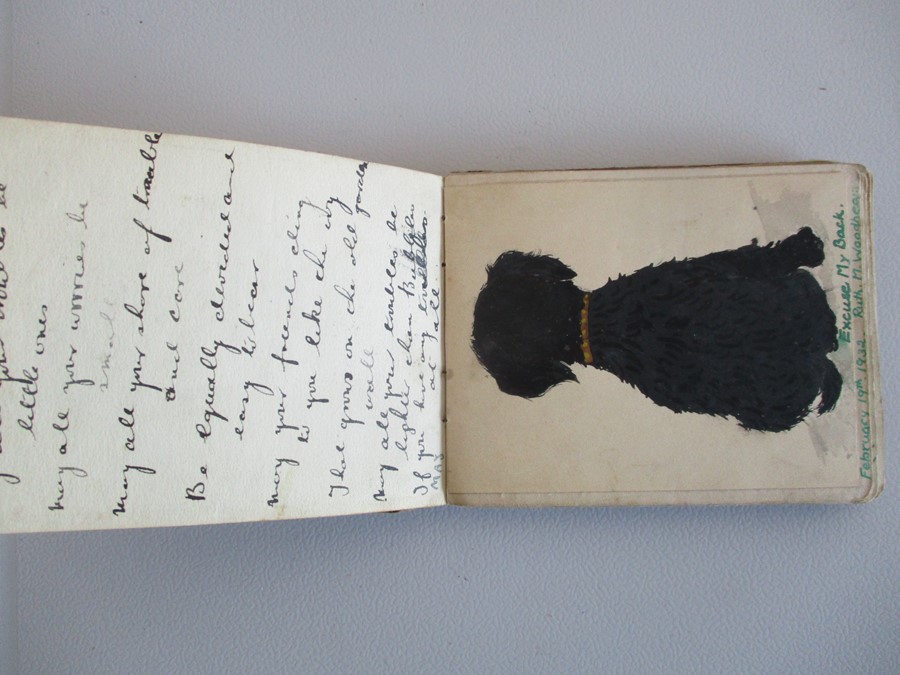 little ones
May all your worries be
small
May all your share of trouble
and care
Be equally divided and
easy to bear
May your friends cling
to you like the ivy
That grows on the old garden
wall
May all your troubles be
lighter than Bubbles
If you have any troubles
at all.
Excuse My Back.
February 19th 1932 Ruth. M.